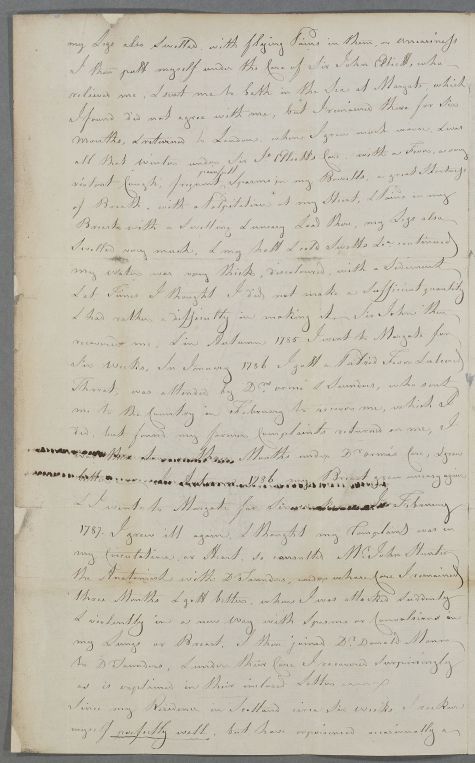 my Legs also Swelled, with flying Pains in them, or weariness
I then putt myself under the Care of Sir John Elliott, who
relieved me, & sent me to bath in the Sea at Margate, which
I found did not agree with me, but I remained there for Six
Months, & returned to London, when I grew much worse, & was
all that winter under Sir Jo. Elliotts Care, with a Fever, a very
violent Cough, frequent painfull Spasms in my Bowells, a great Shortness
of Breath, with a Palpitation at my Heart, & Pains in my
Breasts with a Swelling & uneasy Load there, my Legs also
Swelled very much, & my half continued
my water was very thick, discoloured, with a Sediment
& at Times I thought I did not make a Sufficient quantity
& had rather a difficulty in making it Sir John then
recovered me, & in Autumn 1785 I went to Margate for
Six weeks, In January 1786 I gott a Putrid Fever & ulcered
Throat, was attended by Drs. Orme & Saunders, who sent
me to the Country in February to recover me, which it
did, but found my former Complaints returned on me, I
Months under Dr. Orme's Care, & grew
better 1786 my Breast grew uneasy again
& I went to Margate for Six February
1787. I grew ill again, & thought my Complaint was in
my Circulation, or Heart, so consulted Mr. John Hunter
the Anatomist with Dr. Saunders, under whose Care I remained
three Months & gott better, when I was attacked Suddenly
& violently in a new way with Spasms or Convulsions on
my Lungs or Breast, I then joined Dr. Donald Monro
to Dr Saunders, & under their Care I recovered Surprisingly
as is explained in their inclosed Letter
Since my Residence in Scotland since Six weeks I reckon
myself perfectly well, but have experienced occasionally a